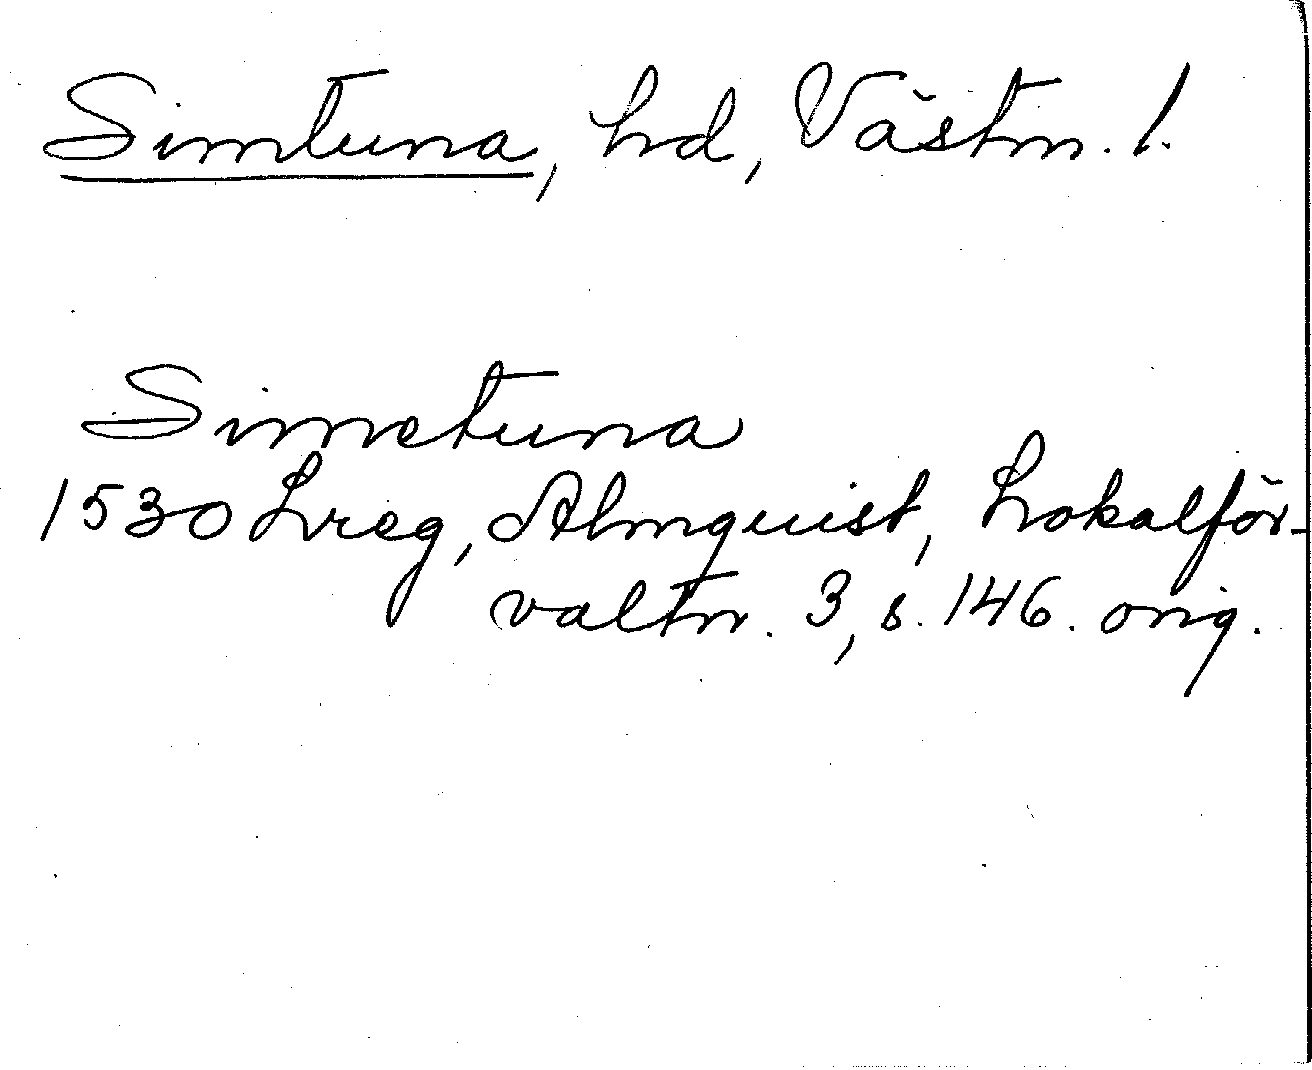 Simtuna, hd, Västm. l.
Simetuna
1530 Lreg, Almquist, Lokalför-
valtn. 3, s. 146. orig.